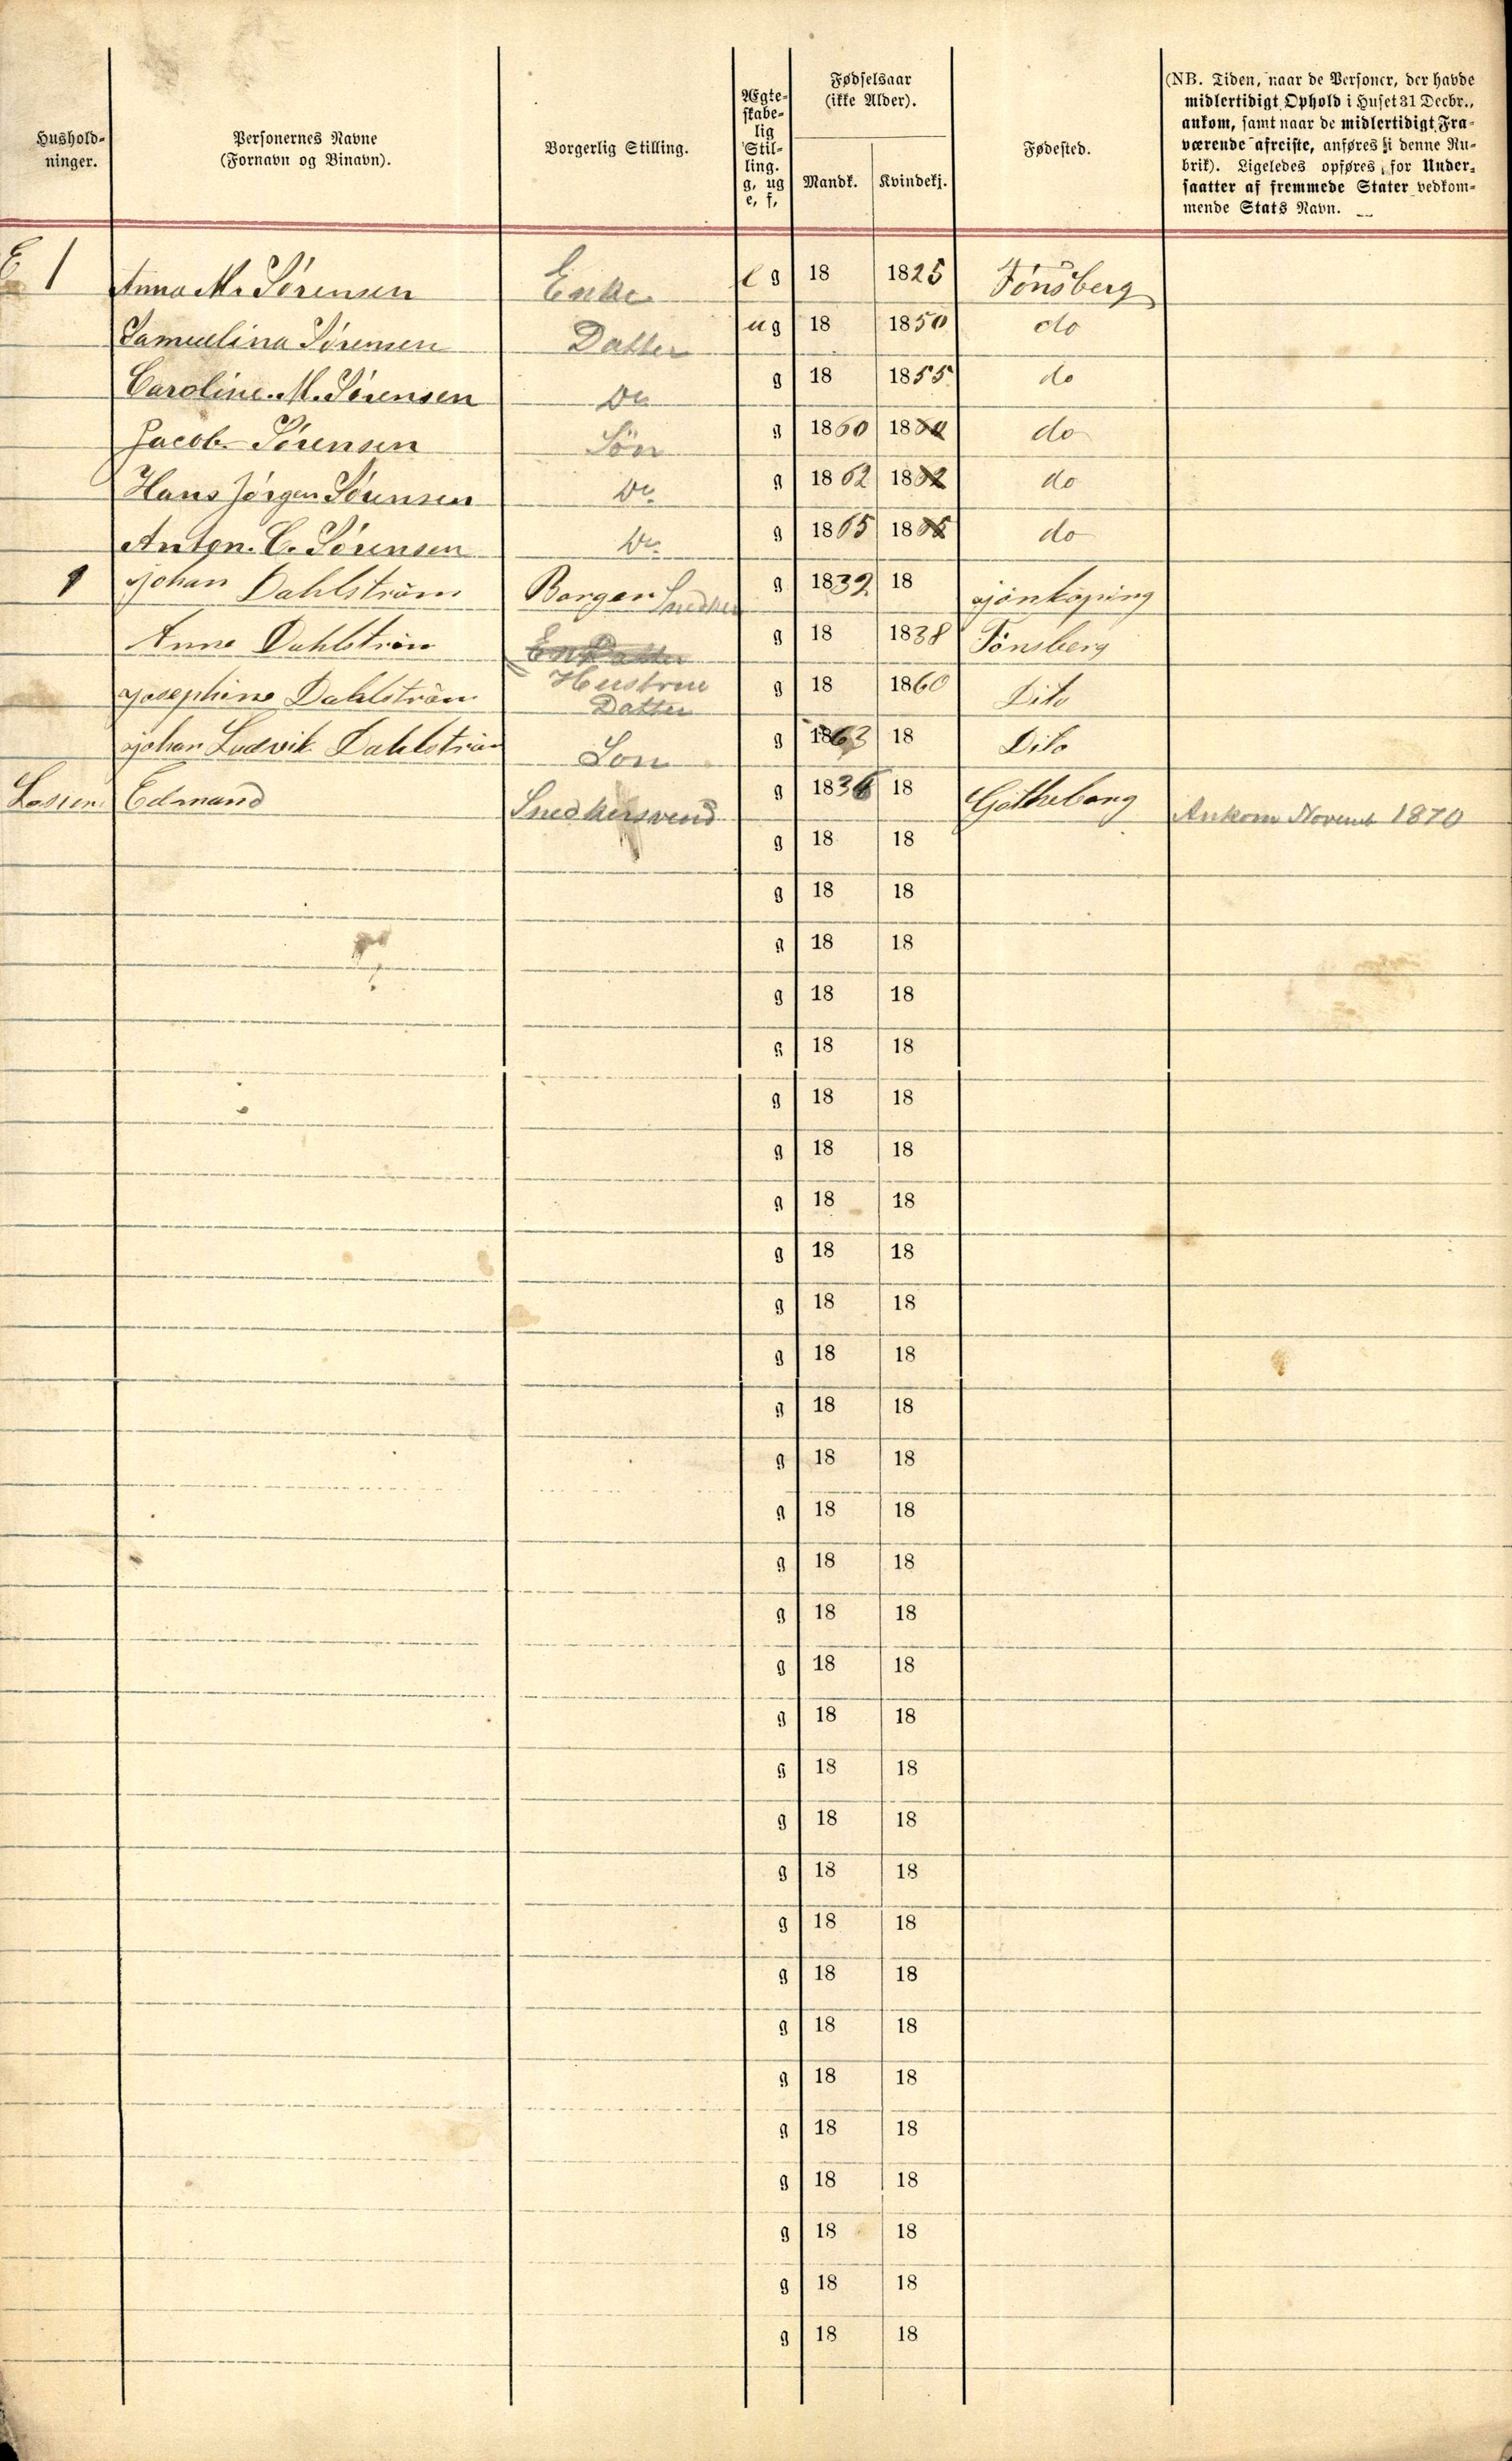 Hushold-
ninger.
Personernes Navne
(Fornavn og Binavn).
Borgerlig Stilling.
Ægte-
skabe-
lig
Stil-
ling.
g, ug
e, f,
Fødselsaar
(ikke Alder).
Mandk.
Kvindekj.
Fødested.
(NB. Tiden, naar de Personer, der havde
midlertidigt Ophold i Huset 31 Decbr.,
ankom, samt naar de midlertidigt Fra-
værende afreiste, anføres i denne Ru-
brik). Ligeledes opføres for Under-
saatter af fremmede Stater vedkom-
mende Stats Navn.
E 1 Anna M. Sørensen Enke e g 18 1825 Tönsberg
Samuelina Sørensen Datter u g 18 1850 do
Caroline. M. Sørensen Do g 18 1855 do
Jacob Sørensen Sön g 1860 18 do
Hans Jørgen Sørensen Do g 1862 18 do
Anton. C. Sørensen Do g 1865 18 do
1 Johan Dahlström Borger Snedker g 1832 18 Jönköping
Anne Dahlström Hustrue g 18 1838 Tönsberg
Josephine Dahlström Datter g 18 1860 Dito
Johan Ludvik Dahlström Son g 1863 18 Dito
Edmand Snedkersvend g 1836 18 Götheborg Ankom Novemb 1870
g 18 18
g 18 18
g 18 18
g 18 18
g 18 18
g 18 18
g 18 18
g 18 18
g 18 18
g 18 18
g 18 18
g 18 18
g 18 18
g 18 18
g 18 18
g 18 18
g 18 18
g 18 18
g 18 18
g 18 18
g 18 18
g 18 18
g 18 18
g 18 18
g 18 18
g 18 18
g 18 18
g 18 18
g 18 18
g 18 18